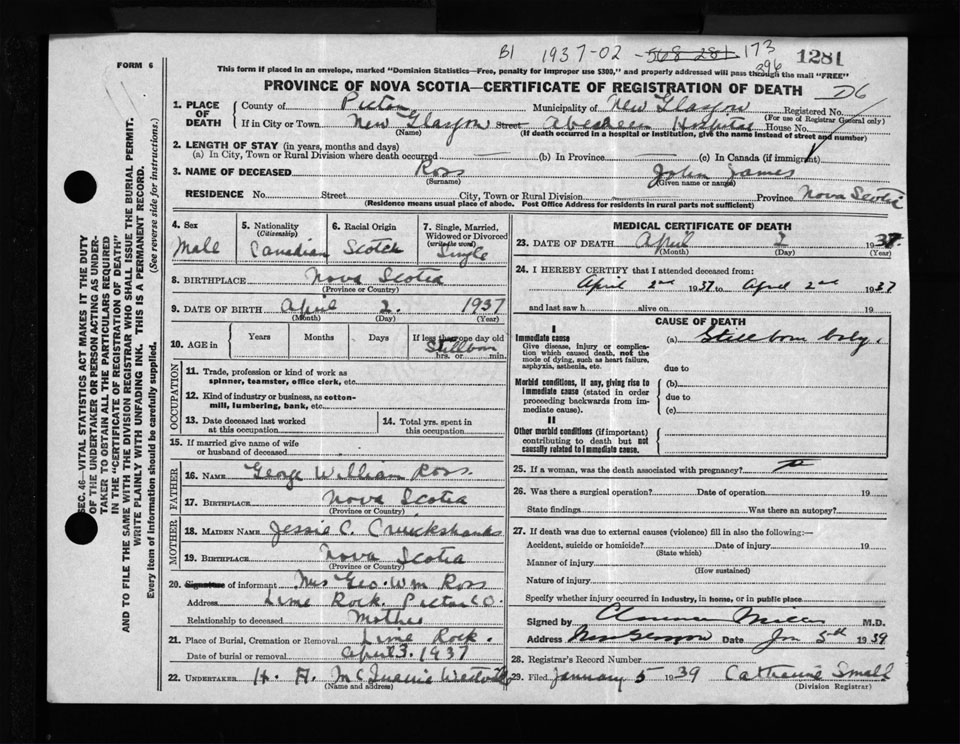 B1 1937-02-568-281 173
396
1281
FORM 6
This form if placed in an envelope, marked "Dominion Statistics—Free, penalty for improper use $300," and properly addressed will pass through the mail "FREE"
PROVINCE OF NOVA SCOTIA—CERTIFICATE OF REGISTRATION OF DEATH
D6
1. PLACE OF DEATH
County of Pictou Municipality of New Glasgow Registered No.
(For use of Registrar General only)
If in City or Town New Glasgow Street Aberdeen Hospital House No.
(Name) (If death occurred in a hospital or institution, give the name instead of street and number)
2. LENGTH OF STAY (in years, months and days)
(a) In City, Town or Rural Division where death occurred — (b) In Province — (c) In Canada (if immigrant)
3. NAME OF DECEASED Ross John James
(Surname) (Given name or names)
RESIDENCE No. Street City, Town or Rural Division Province Nova Scotia
(Residence means usual place of abode. Post Office Address for residents in rural parts not sufficient)
4. Sex
Male
5. Nationality
(Citizenship)
Canadian
6. Racial Origin
Scotch
7. Single, Married, Widowed or Divorced
(write the word)
Single
8. BIRTHPLACE Nova Scotia
(Province or Country)
9. DATE OF BIRTH April 2. 1937
(Month) (Day) (Year)
10. AGE in
Years Months Days If less than one day old
Stillborn
hrs. or min.
OCCUPATION
11. Trade, profession or kind of work as
spinner, teamster, office clerk, etc.
12. Kind of industry or business, as cotton-
mill, lumbering, bank, etc.
13. Date deceased last worked
at this occupation
14. Total yrs. spent in
this occupation
15. If married give name of wife
or husband of deceased
FATHER
16. NAME George William Ross
17. BIRTHPLACE Nova Scotia
(Province or Country)
MOTHER
18. MAIDEN NAME Jessie C. Cruickshanks
19. BIRTHPLACE Nova Scotia
(Province or Country)
20. Signature of informant Mrs Geo. Wm Ross
Address Lime Rock. Pictou Co
Relationship to deceased Mother
21. Place of Burial, Cremation or Removal Lime Rock.
Date of burial or removal April 3. 1937
22. UNDERTAKER H. A. McQuarrie Westville
(Name and address)
MEDICAL CERTIFICATE OF DEATH
23. DATE OF DEATH April 2 1937.
(Month) (Day) (Year)
24. I HEREBY CERTIFY that I attended deceased from:
April 2nd 1937 to April 2nd 1937
and last saw h alive on 19
CAUSE OF DEATH
I
Immediate cause
Give disease, injury or complica-
tion which caused death, not the
mode of dying, such as heart failure,
asphyxia, asthenia, etc.
(a) Stillborn baby.
due to
Morbid conditions, if any, giving rise to
immediate cause (stated in order
proceeding backwards from im-
mediate cause).
(b)
due to
(c)
II
Other morbid conditions (if important)
contributing to death but not
causally related to immediate cause.
25. If a woman, was the death associated with pregnancy?
26. Was there a surgical operation? Date of operation 19
State findings Was there an autopsy?
27. If death was due to external causes (violence) fill in also the following:—
Accident, suicide or homicide? Date of injury 19
(State which)
Manner of injury
(How sustained)
Nature of injury
Specify whether injury occurred in industry, in home, or in public place
Signed by Clarence Miller M.D.
Address New Glasgow Date Jan 5th 1939
28. Registrar's Record Number
29. Filed January 5 1939 Catharine Small
(Division Registrar)
SEC. 46—VITAL STATISTICS ACT MAKES IT THE DUTY
OF THE UNDERTAKER OR PERSON ACTING AS UNDER-
TAKER TO OBTAIN ALL THE PARTICULARS REQUIRED
IN THE "CERTIFICATE OF REGISTRATION OF DEATH"
AND TO FILE THE SAME WITH THE DIVISION REGISTRAR WHO SHALL ISSUE THE BURIAL PERMIT.
WRITE PLAINLY WITH UNFADING INK. THIS IS A PERMANENT RECORD.
Every item of information should be carefully supplied. (See reverse side for instructions.)